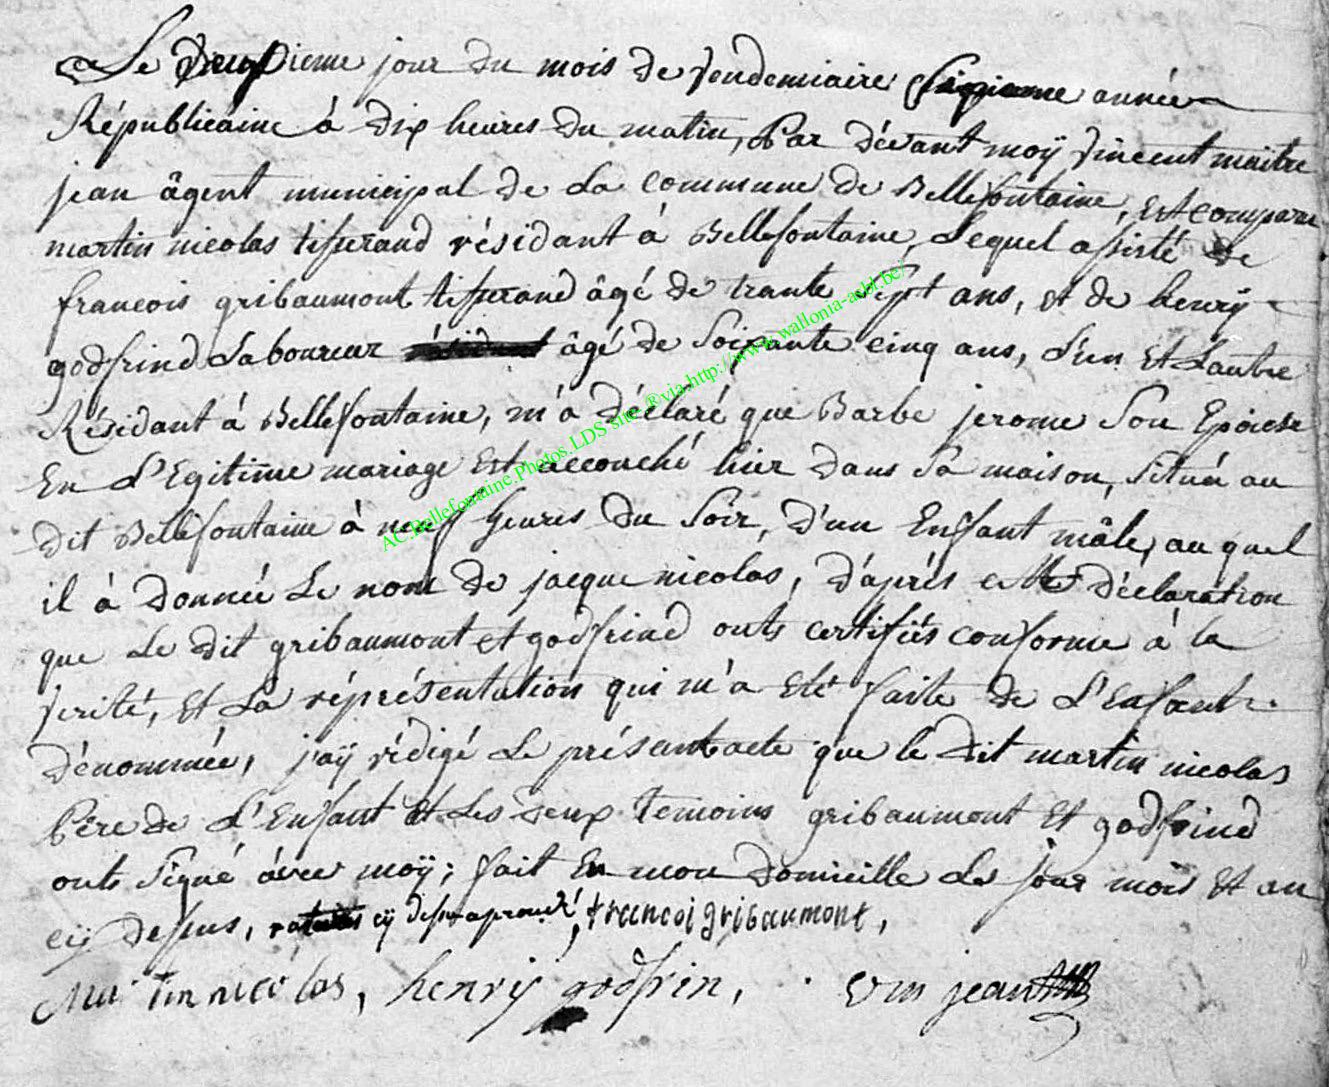 Le Deuxieme jour du mois de vendemiaire Sixieme année
Républicaine à dix heures du matin, Par dévant moÿ vincent maitre
jean âgent municipal de La commune de Bellefontaine, est comparu
martin nicolas tisserand résidant à Bellefontaine, Lequel assisté de
francois gribaumont tisserand âgé de trante Sept ans, et de henrÿ
godfrind Laboureur résidant âgé de Soixante cinq ans, L'un Et Lautre
Résidant à Bellefontaine, m'a déclaré que Barbe jerome Son Epouse
En L'Egitime mariage Est accouché hier dans Sa maison, Situéé au
dit Bellefontaine à neuf heures du Soir, d'un Enfant mâle, au quel
il à donnéé Le nom de jacque nicolas, d'aprés cette déclaration
que Le dit gribaumont et godfrind onts certifiés conforme à la
verité, Et La réprésentation qui m'a Eté faite de L'Enfant
dénommée, j'aÿ rédigé Le présent acte que le dit martin nicolas
Pére de L'Enfant et Les deux temoins gribaumont Et godfrind
onts Signé avec moÿ; fait En mon domicille Les jour mois Et an
cÿ dessus, ratures cÿ dessu aprouvé, francoi gribaumont,
Martin nicolas, henrÿ godfrin, vin jean
AC.Bellefontaine.Photos.LDS site.®via.http://www.wallonia-asbl.be/